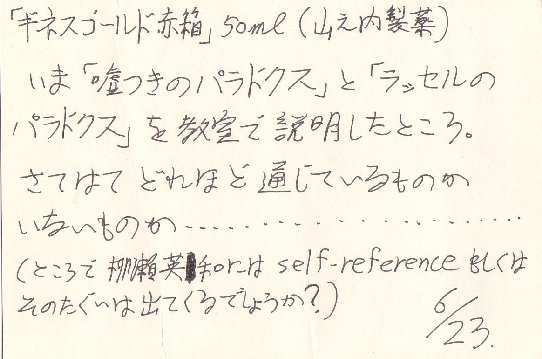 「ギネスゴールド赤箱」50ml(山之内製薬)
いま「嘘つきのパラドクス」と「ラッセルの
パラドクス」を教室で説明したところ。
さてはて どれほど通じているものか
いないものか‥‥‥‥‥‥‥‥‥‥
(ところで 柳瀬英和には self-reference もしくは
そのたぐいは出てくるでしょうか?)
6/23.